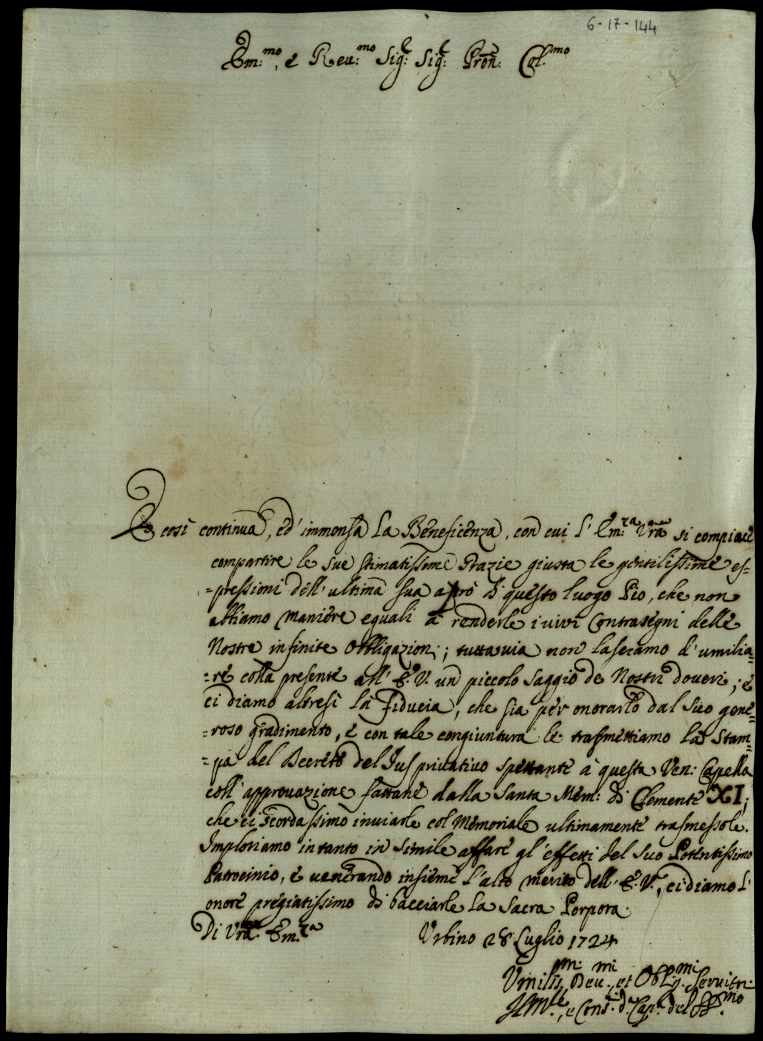 6-17-144
Em:mo, e Reu:mo Sig:r Sig:r Pron: Col:mo
E così continua, ed' immensa la Beneficenza, con cui l' Em:za Vra si compiace
compartire le sue stimatissime Grazie giusta le gentilissime es-
=pressioni dell' ultima sua a prò di questo luogo Pio, che non
abbiamo maniere eguali a renderle i vivi Contrasegni delle
Nostre infinite Obbligazioni; tuttavia non lasciamo d' umilia=
=re colla presente all' E:V. un piccolo saggio de Nostri doveri; e
ci diamo altresì la fiducia, che sia per onorarlo dal suo gene=
=roso gradimento, e con tale congiuntura le trasmettiamo la Stam=
=pa del Decreto del Jus privativo spettante à questa Ven: Capella
coll' approvazione fattane dalla Santa Mem: di Clemente XI,
che ci scordassimo inviarle col Memoriale ultimamente trasmessole.
Imploriamo intanto in simile affare gl' effetti del suo Potentissimo
Patrocinio, e venerando insieme l' alto merito dell' E:V., ci diamo l'
onore pregiatissimo di bacciarle la Sacra Porpora.
Di Vra Em:za Urbino 28 Luglio 1724
Vmiliss:mi Deu:mi, et Obblig:mi Seruitri
, e Conf: d: Cap: del SS:mo